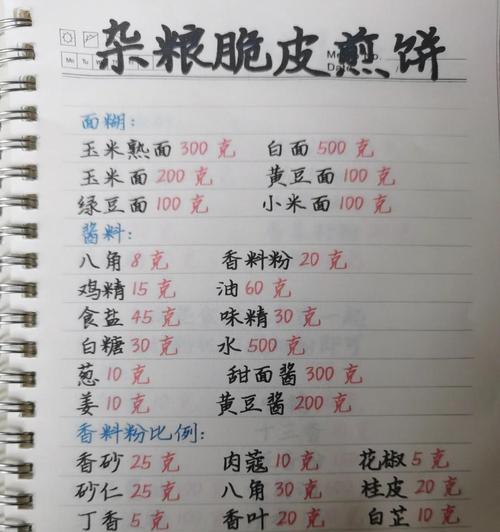 杂粮脆皮煎饼
面糊:
玉米熟面 300 克 白面 500 克
玉米面 200 克 黄豆面 100 克
绿豆面 100 克 小米面 100 克
酱料:
八角 8 克 香料粉 20 克
鸡精 15 克 油 60 克
食盐 45 克 味精 30 克
白糖 30 克 水 500 克
葱 10 克 甜面酱 300 克
姜 10 克 黄豆酱 200 克
香料粉比例:
香砂 25 克 肉蔻 10 克 花椒 5 克
砂仁 25 克 八角 30 克 桂皮 20 克
丁香 5 克 香叶 20 克 白芷 10 克